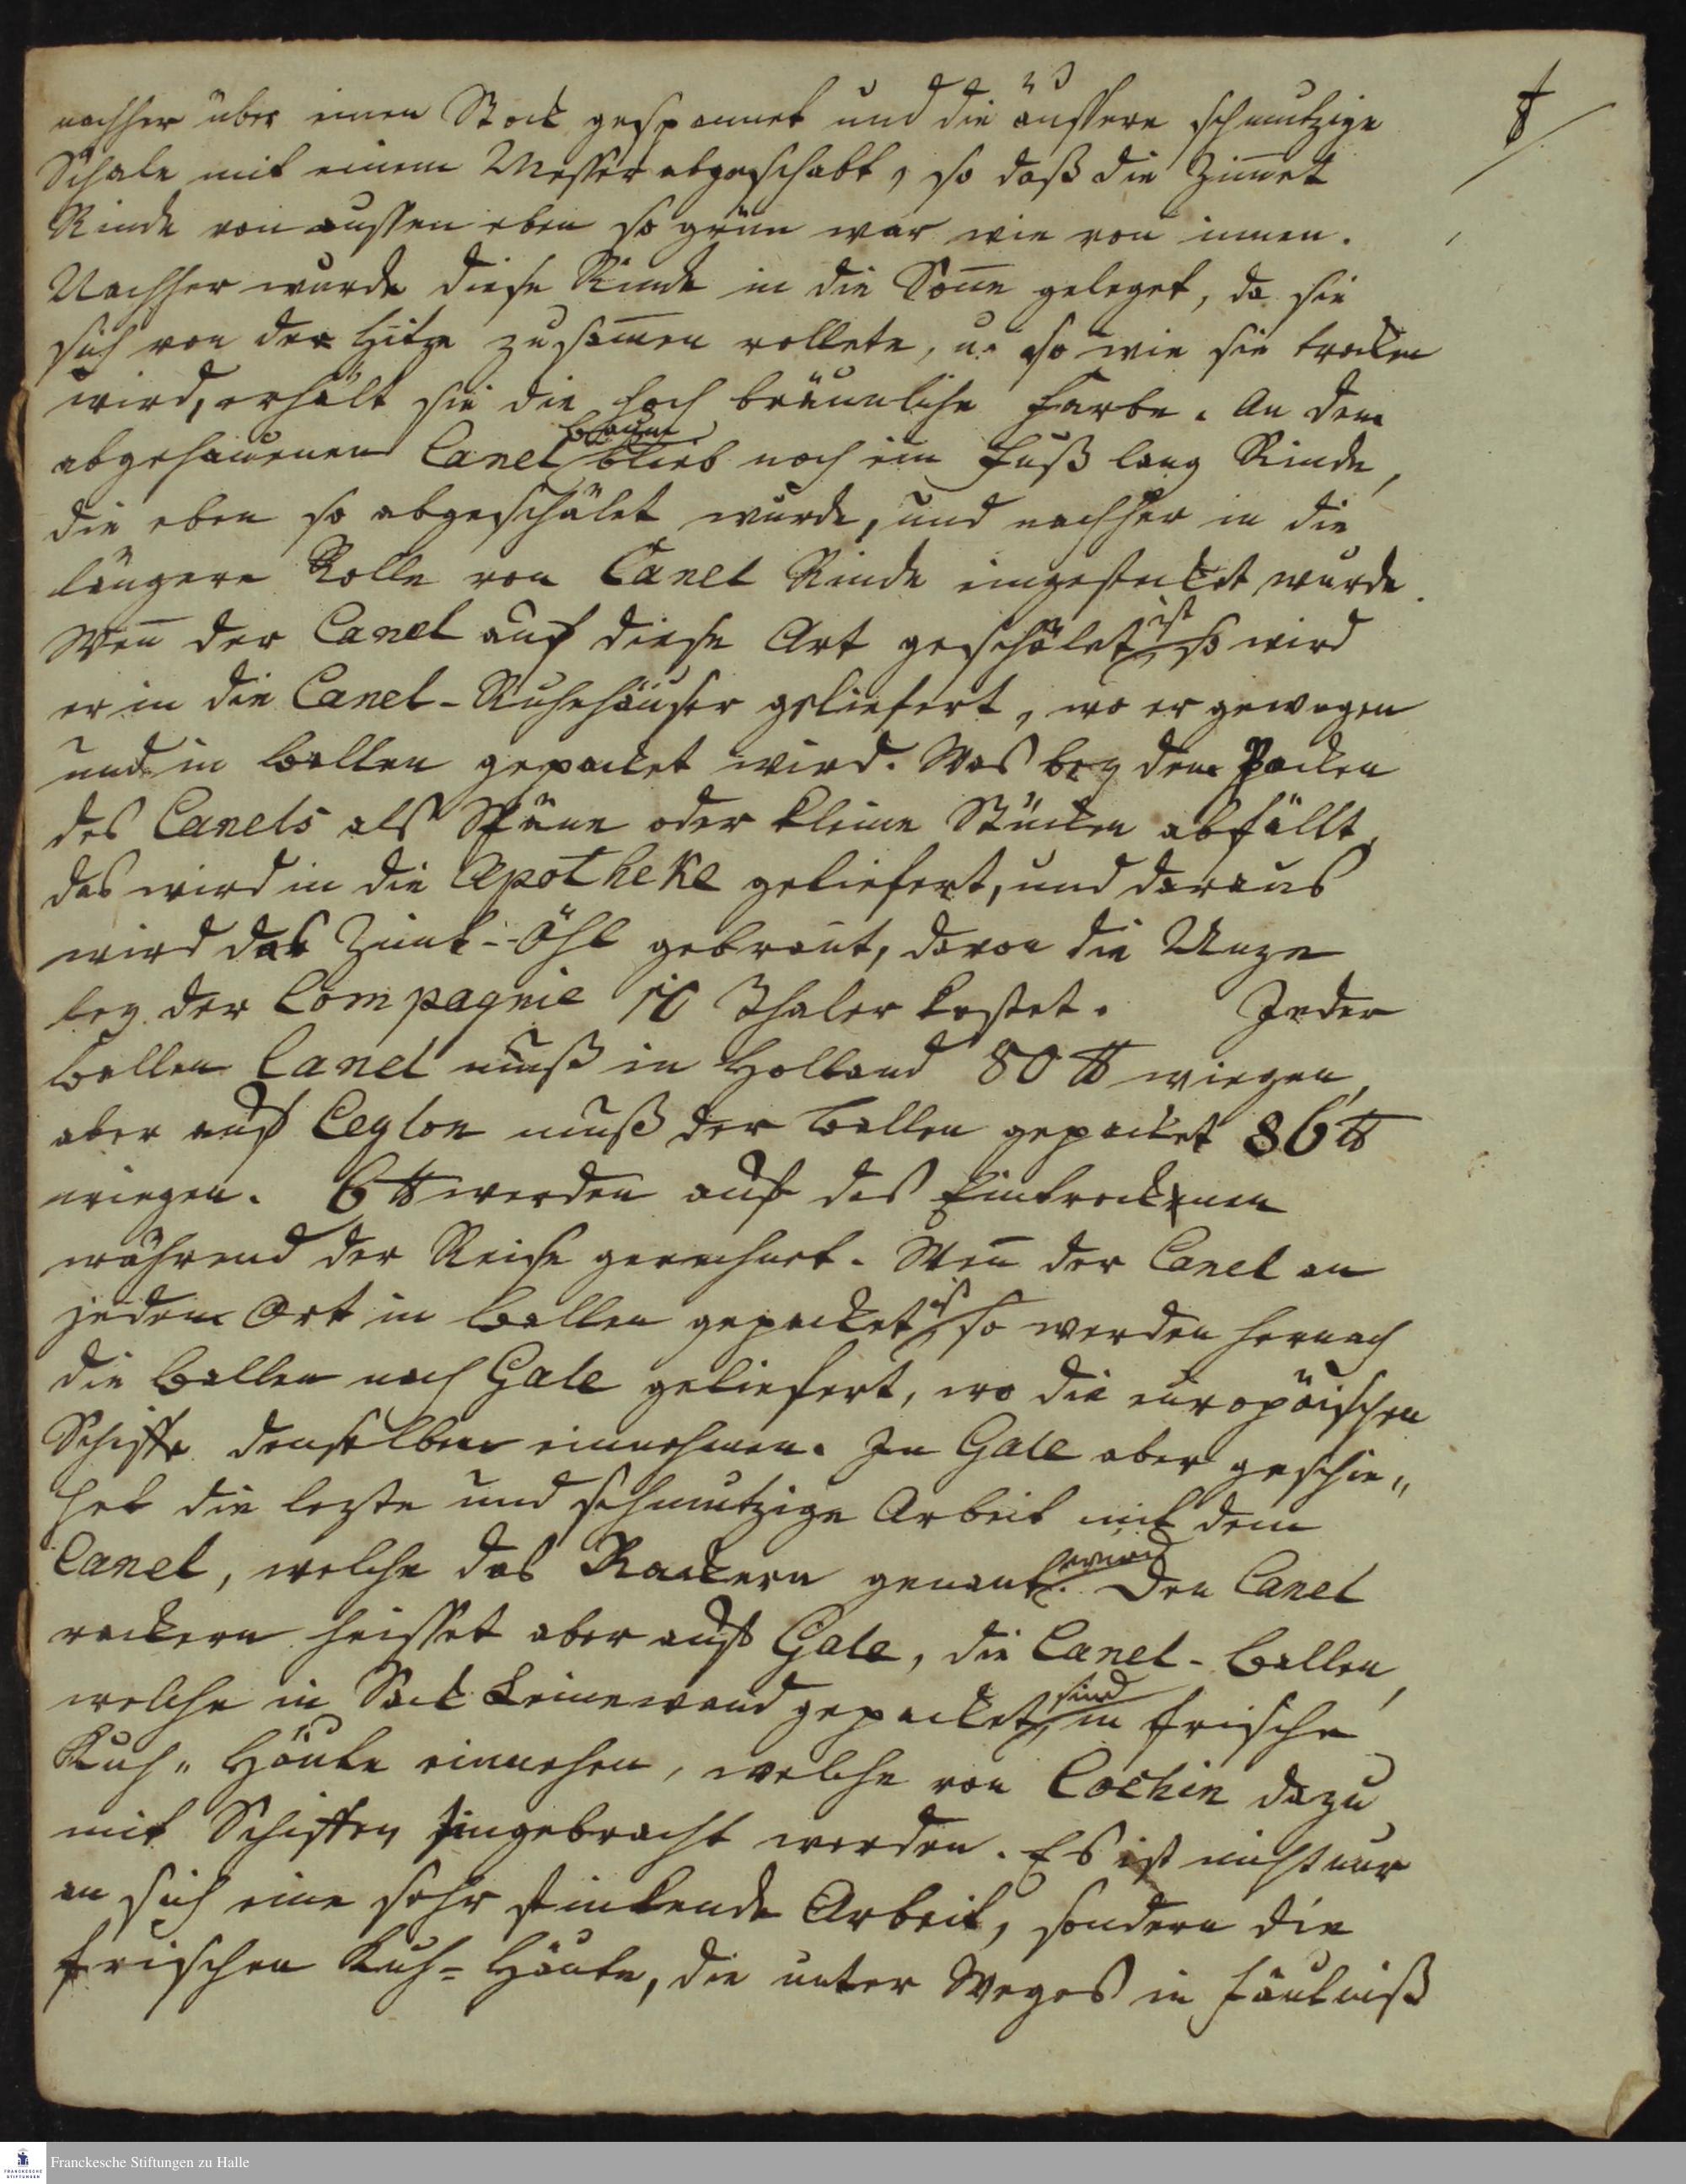 nachher über einen Stock gespannet und die äussere schmutzige
Schale mit einem Messer abgeschabt, so daß die Zimet
Rinde von aussen eben so grün war wie von innen.
Nachher wurde diese Rinde in die Sone geleget, da sie
sich von der Hitze zusamen rollete, u. so wie sie trocken
wird, erhält sie die hoch bräunliche Farbe. An dem
abgehauenen Canelbaum blieb noch ein Fuß lang Rinde,
die eben so abgeschälet wurde, und nachher in die
längere Rolle von Canel Rinde eingestecket wurde.
Wen der Canel auf diese Art geschälet ist, so wird
er in die Canel-Ruhehäuser geliefert, wo er gewogen
und in Ballen gepacket wird. Was bey dem Packen
des Canels als Späne oder kleine Stücken abfällt,
das wird in die Apotheke geliefert, und daraus
wird das Zimt-Öhl gebrant, davon die Unze
bey der Compagnie 10 Thaler kostet. Jeder
Ballen Canel muß in Holland 80 ℔ wiegen,
aber auf Ceylon muß der Ballen gepacket 86 ℔
wiegen. 6 ℔ werden auf das Eintrocknen
während der Reise gerechnet. Wen der Canel an
jedem Ort in Ballen gepacket ist, so werden hernach
die Ballen nach Gale geliefert, wo die europäischen
Schiffe denselben einnehmen. In Gale aber geschie„
het die lezte und schmutzige Arbeit mit dem
Canel, welche das Rackern genant wird. Den Canel
rackern heisset aber auf Gale, die Canel-Ballen,
welche in Sack Leinewand gepacket sind, in frische
Kuh„ Häute einnehen, welche von Cochin dazu
mit Schiffen hingebracht werden. Es ist nicht nur
an sich eine sehr stinkende Arbeit, sondern die
frischen Kuh-Häute, die unter Weges in Fäulniß
Franckesche Stiftungen zu Halle